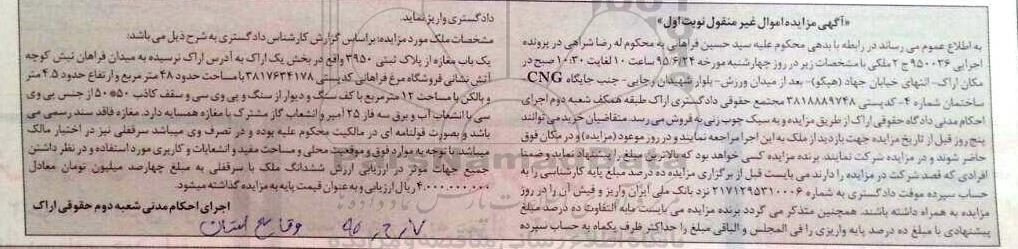 «آگهی مزایده اموال غیر منقول نوبت اول»
به اطلاع عموم می رساند در رابطه با بدهی محکوم علیه سید حسین فراهانی به محکوم له رضا شراهی در پرونده
اجرایی ۹۵۰۰۳۶ ج ۲ ملکی با مشخصات زیر در روز چهارشنبه مورخه ۹۵/۶/۲۴ ساعت ۱۰ لغایت ۱۰:۳۰ صبح در
مکان اراک- انتهای خیابان جهاد (هپکو)- بعد از میدان ورزش- بلوار شهیدان رجایی - جنب جایگاه CNG-
ساختمان شماره ۴- کدپستی ۳۸۱۸۸۸۹۷۴۸ مجتمع حقوقی دادگستری اراک طبقه همکف شعبه دوم اجرای
احکام مدنی دادگاه حقوقی اراک از طریق مزایده و به سبک چوب زنی به فروش می رسد. متقاضیان خرید می توانند
پنج روز قبل از تاریخ مزایده جهت بازدید از ملک به این اجرا مراجعه نمایند و در روز موعود (مزایده) و در مکان فوق
حاضر شوند و در مزایده شرکت نمایند. برنده مزایده کسی خواهد بود که بالاترین مبلغ را پیشنهاد نماید و ضمنا
افرادی که قصد شرکت در مزایده را دارند می بایست قبل از برگزاری مزایده ده درصد مبلغ پایه کارشناسی را به
حساب سپرده موقت دادگستری به شماره ۲۱۷۱۲۹۵۳۱۰۰۰۶ نزد بانک ملی ایران واریز و فیش آن را در روز
مزایده به همراه داشته باشند. همچنین متذکر می گردد برنده مزایده می بایست مابه التفاوت ده درصد مبلغ
پیشنهادی با مبلغ ده درصد پایه واریزی را فی المجلس و الباقی مبلغ را حداکثر ظرف یکماه به حساب سپرده
دادگستری واریز نماید.
مشخصات ملک مورد مزایده: براساس گزارش کارشناس دادگستری به شرح ذیل می باشد:
یک باب مغازه از پلاک ثبتی ۳۹۵۰ واقع در بخش یک اراک به آدرس اراک نرسیده به میدان فراهان نبش کوچه
آتش نشانی فروشگاه مرغ فراهانی کدپستی ۳۸۱۷۶۳۴۱۷۸ با مساحت حدود ۴۸ متر مربع و ارتفاع حدود ۴.۵ متر
و بالکن با مساحت ۱۲ مترمربع با کف سنگ و دیوار از سنگ و پی وی سی و سقف کاذب ۵۰*۵۰ از جنس پی وی
سی با انشعاب آب و برق سه فاز ۲۵ آمپر و انشعاب گاز مشترک با مغازه همسایه دارد. مغازه فاقد سند رسمی می
باشد و بصورت قولنامه ای در مالکیت محکوم علیه بوده و در تصرف وی میباشد سرقفلی نیز در اختیار مالک
میباشد. با توجه به موارد فوق و موقعیت محلی و مساحت مفید و انشعابات و کاربری مورد استفاده و در نظر داشتن
جمیع جهات موثر در ارزیابی ارزش ششدانگ ملک با سرقفلی به مبلغ چهارصد میلیون تومان معادل
۴،۰۰۰،۰۰۰،۰۰۰ ریال ارزیابی و به عنوان قیمت پایه به مزایده گذاشته میشود.
اجرای احکام مدنی شعبه دوم حقوقی اراک
وقایع استان